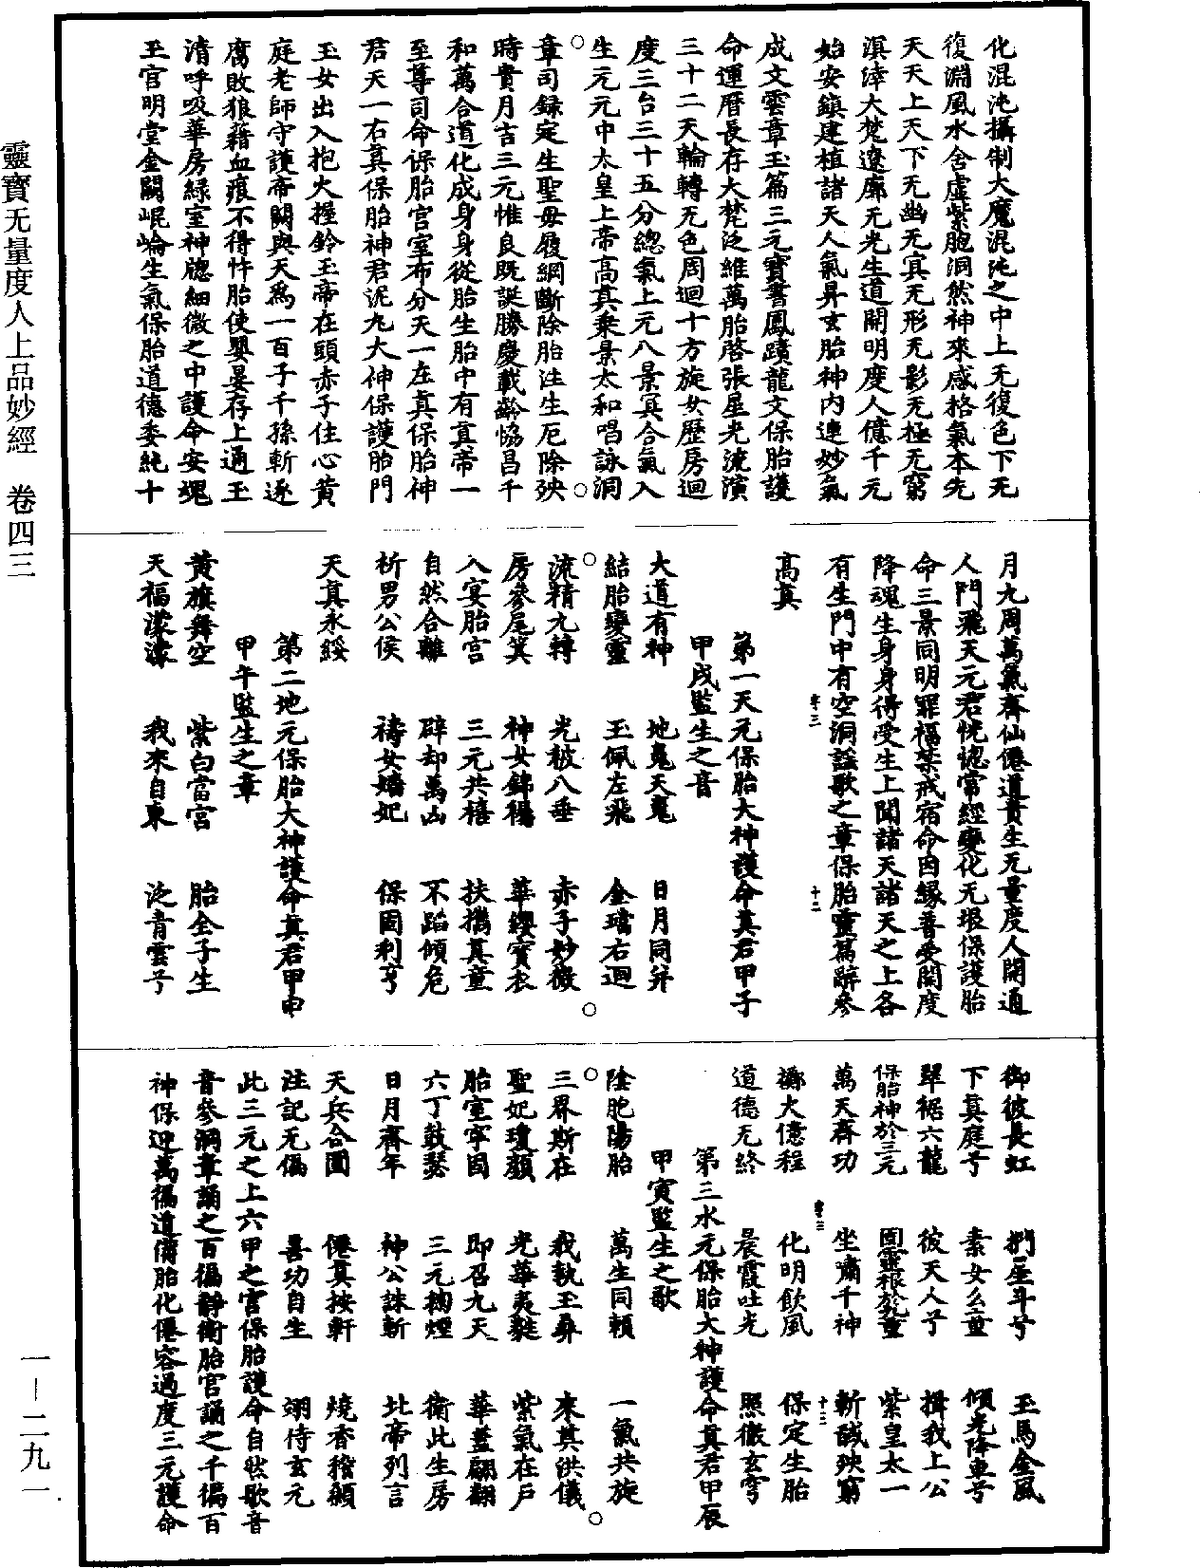 化混沌攝制大魔混沌之中上无復色下无
復淵風水舍虛紫胞洞然神來感格氣本先
天天上天下无幽无冥无形无影无極无窮
溟涬大梵遼廓无光生道開明度人億千元
始安鎮建植諸天人氣昇玄胎神內連妙氣
成文雲章玉篇三元寶書鳳蹟龍文保胎護
命運曆長存大梵泛維萬胎啓張星光流演
三十二天輪轉无色周迴十方旋女歷房迴
度三台三十五分總氣上元八景冥合氣入
生元元中太皇上帝高真乘景太和唱詠洞
章司録定生聖母履綱斷除胎注生厄除殃
時貴月吉三元惟良既誕勝慶載齡協昌千
和萬合道化成身身從胎生胎中有真帝一
至尊司命保胎官室布分天一在真保胎神
君天一右真保胎神君泥九大神保護胎門
玉女出入抱火握鈴玉帝在頭赤子住心黄
庭老師守護帝闕與天爲一百子千孫斬逐
腐敗狼藉血痕不得忤胎使嬰晏存上通玉
清呼吸華房綠室神牎細微之中護命安魂
玉官明堂金闕崐崘生氣保胎道德委純十
月九周萬氣齊仙僊道貴生无量度人開通
人門飛天元君恍惚常經變化无垠保護胎
命三景同明罪福禁戒宿命因緣普受開度
降魂生身身得受生上聞諸天諸天之上各
有生門中有空洞謠歌之章保胎靈篇辭參
高真
第一天元保胎大神護命真君甲子
甲戌監生之音
大道有神 地魂天魂 日月同并
結胎變靈 玉佩左飛 金璫右迴
流精九轉 光被八垂 赤子妙微
房參尾箕 神女錦褐 華纓寶衣
入宴胎宮 三元共禧 扶攜真童
自然合離 辟却萬凶 不蹈傾危
祈男公侯 禱女嬪妃 保固利亨
天真永綏
第二地元保胎大神護命真君甲申
甲午監生之章
黄旗舞空 紫白當宮 胎全子生
天福濛濛 我來自東 泛青雲兮
御彼長虹 捫屋斗兮 玉馬金風
下真庭兮 素女么童 傾光降車兮
翠裾六龍 彼天人兮 揖我上公
保胎神於三元 固靈根於乾童 紫皇太一
萬天齊功 坐嘯千神 斬馘殃窮
擲大億程 化明飲風 保定生胎
道德无終 晨霞吐光 照徹玄穹
第三水元保胎大神護命真君甲辰
甲寅監生之歌
陰胞陽胎 萬生同賴 一氣共旋
三界斯在 我執玉彝 來其洪儀
聖妃瓊顏 光華夷鮭 紫氣在戶
胎室寧固 即召九天 華蓋翩翻
六丁鼓瑟 三元掬煙 衛此生房
日月齊年 神公誅斬 北帝列言
天兵合圖 僊真按軒 燒香稽顙
注記无僞 善功自生 翊侍玄元
此三元之上六甲之宮保胎護命自然歌音
音參洞章誦之百徧靜衛胎官誦之千徧百
神保迎萬徧道備胎化僊容過度三元護命
靈寳无量度人上品妙經 卷四三
一—二九一